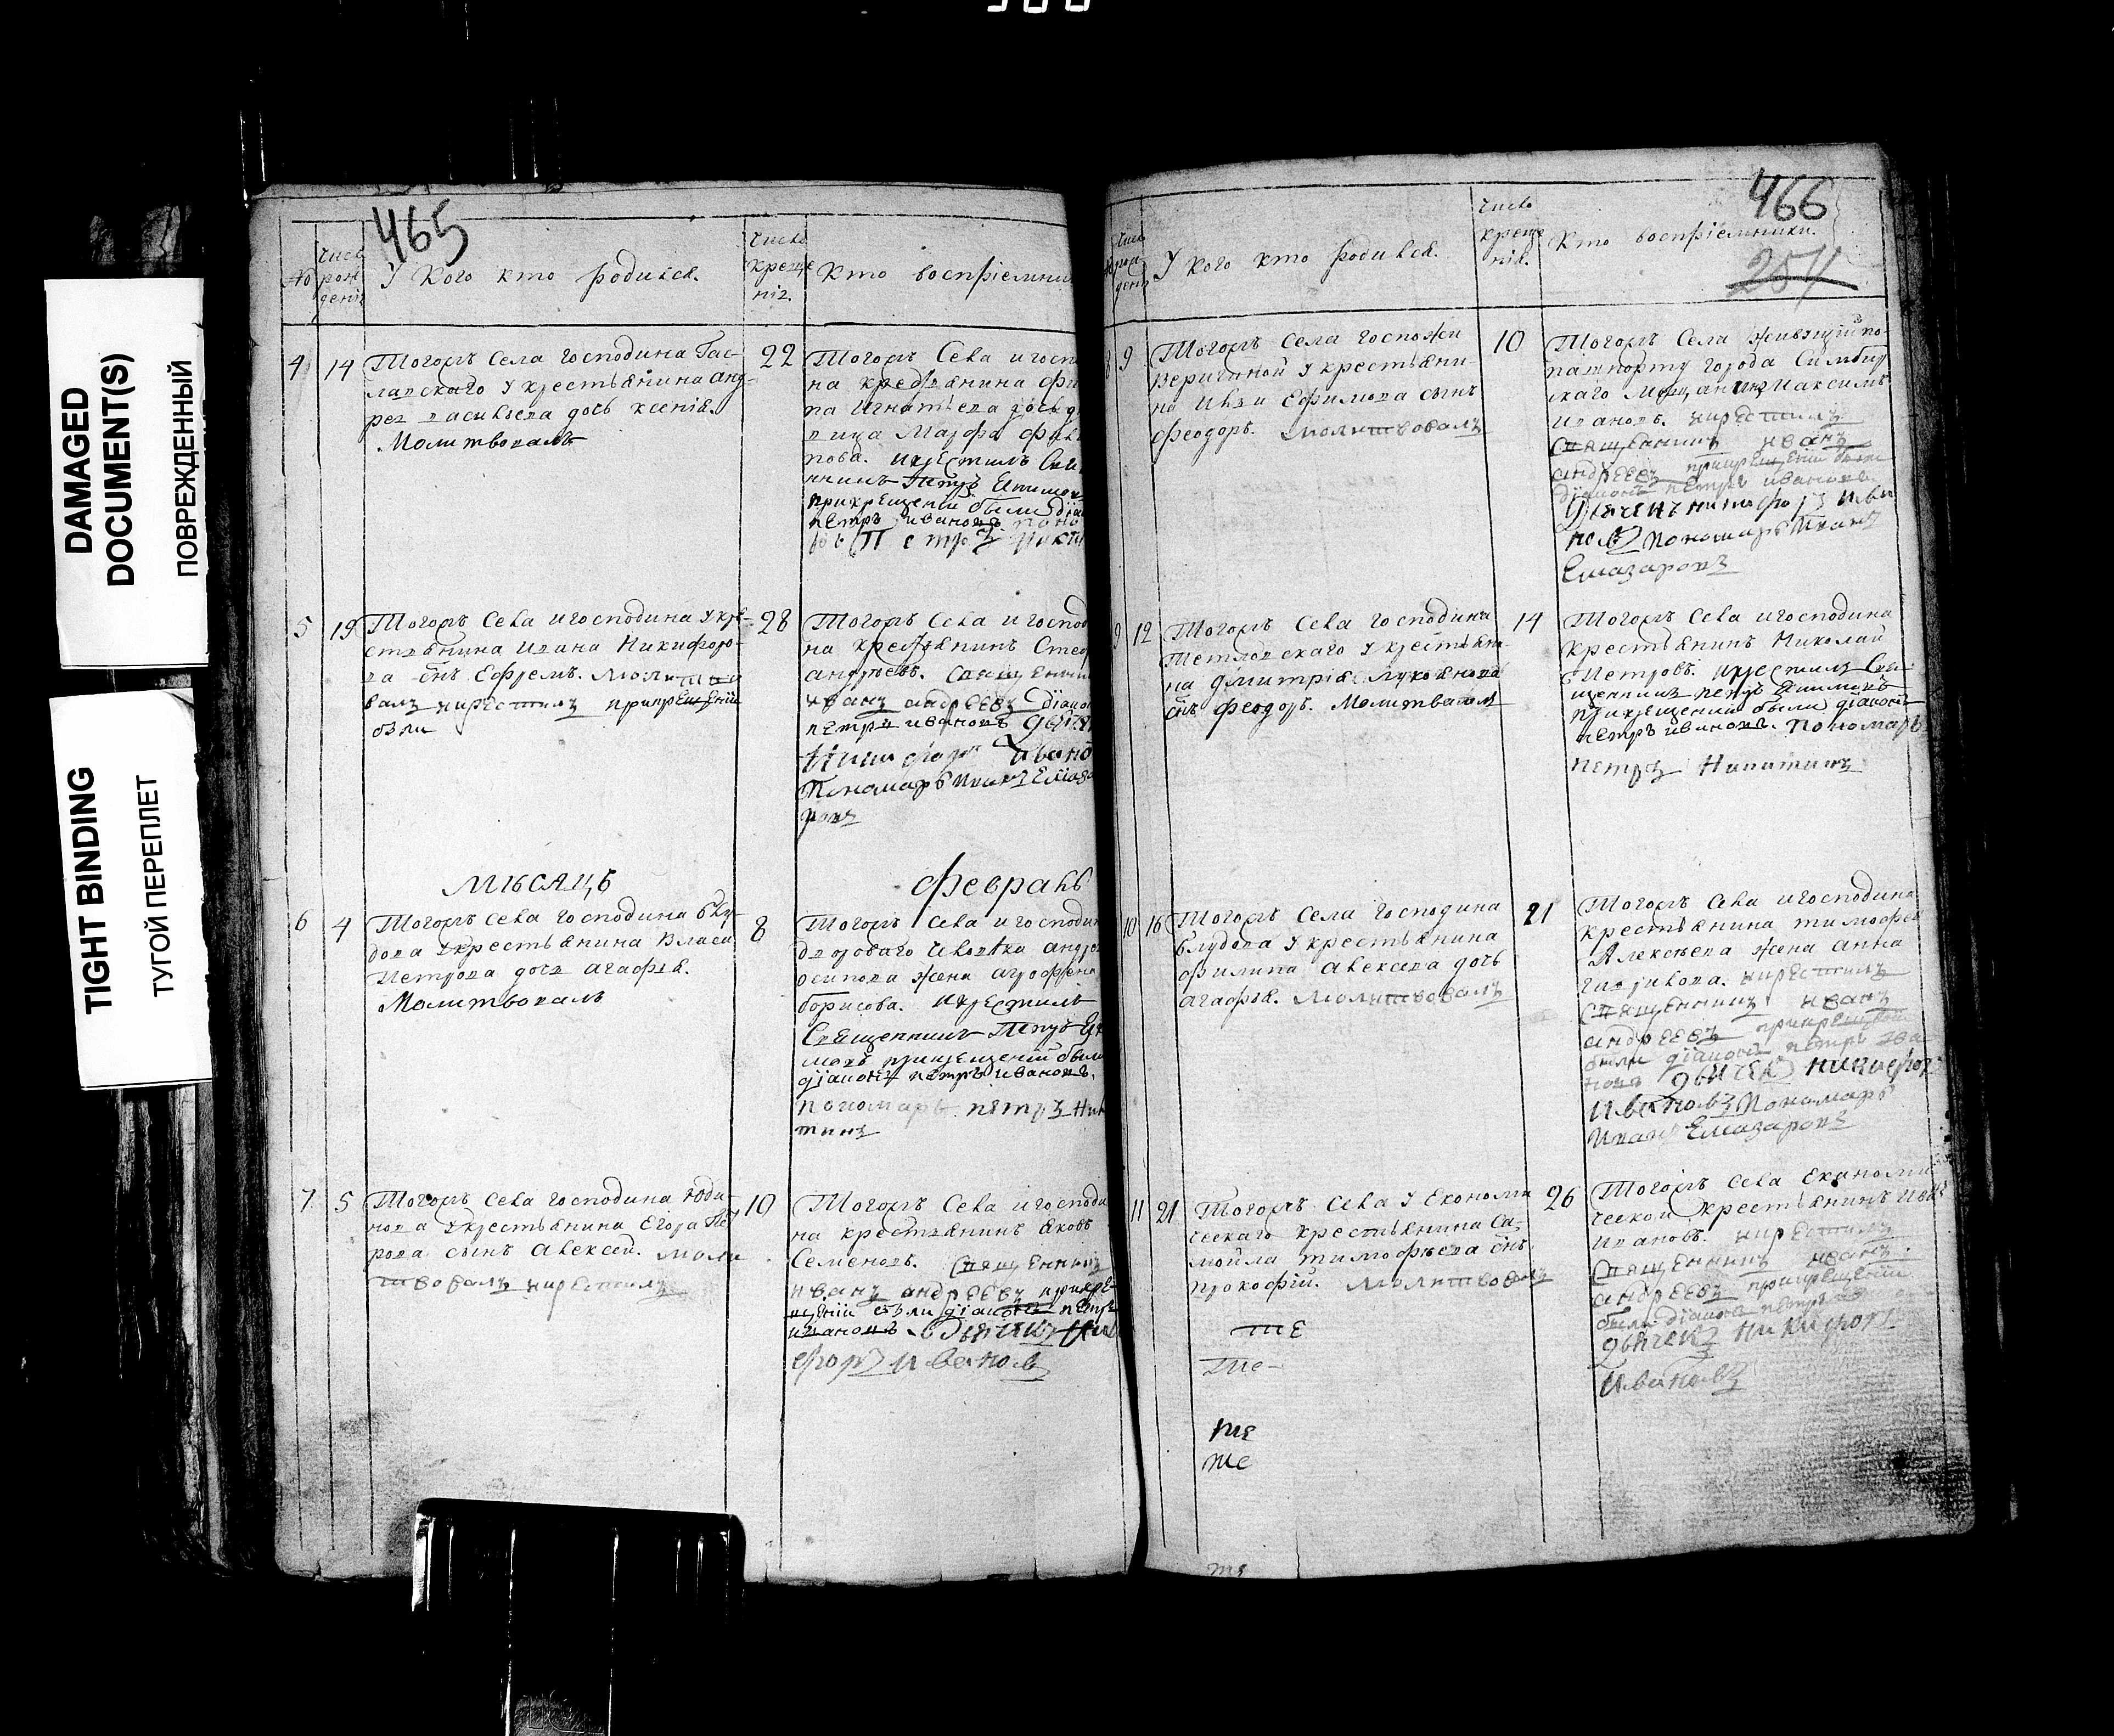 DAMAGED
DOCUMENT(S)
ПОВРЕЖДЕННЫЙ
TIGHT BINDING
ТУГОЙ ПЕРЕПЛЕТ
465
Число рождени
У кого кто родился.
Число крещенія.
Кто воспріемники
4 14
Тогожъ села господина
у крестьянина Анд-
рея Васильева дочь Ксенія.
Молитвовалъ
22
Тогожъ села и госпо
на крестьянина
па Игнатьева дочь
вица Марфа
пова. крестилъ Свя
нникъ Петръ
прикрещеніи были
петръ ивановъ
Петръ
5 19
Тогожъ села и господина у кре-
стьянина Ивана Никифоро-
ва снъ Ефремъ. Молитво
валъ крестилъ прикрещеніи
были
28
Тогожъ села и господ
на крестьянинъ Стеф
андреевъ. Священник
иванъ андреевъ діако
петръ ивановъ
Никифоръ Ивано
Пономарь Иванъ Елиаза
ровъ
МѢСЯЦЪ
февраль
6 4
Тогожъ села господина Блу-
дова у крестьянина Власа
Петрова дочь Агафья.
Молитвовалъ
8
Тогожъ села и господин
дворового человека андре
осипова жена агрофена
борисова. крестилъ
Священникъ Петръ
мовъ прикрещеніи были
діаконъ петръ ивановъ.
пономарь петръ Ники
тинъ
7 5
Тогожъ села господина Юди-
нова у крестьянина Егора Пет
рова сынъ Алексей. моли
твовалъ крестилъ
10
Тогожъ села и господи
на крестьянинъ Яковъ
Семеновъ. Священникъ
иванъ андреевъ прикре-
щеніи были діаконъ петръ
ивановъ дьячекъ Ники
форъ Ивановъ
466
251
Число рождени
У кого кто родился.
Число крещенія.
Кто воспріемники.
9
Тогожъ села госпожи
Веригиной у крестьяни-
на Ивана Ефимова сынъ
феодоръ. Молитвовалъ
10
Тогожъ села живущій по
пашпорту города Симбир
скаго Мещанинъ Максимъ
Ивановъ. крестилъ
Священникъ иванъ
андреевъ прикрещеніи были
діаконъ петръ ивановъ
Дьячекъ никифоръ Ива
новъ Пономарь Иванъ
Елиазаровъ
9 12
Тогожъ села господина
у крестьяни
на Дмитрія Лукоянова
снъ феодоръ. Молитвовалъ
14
Тогожъ села и господина
крестьянинъ Николай
Петровъ. крестилъ Свя-
щенникъ петръ
прикрещеніи были діаконъ
петръ ивановъ. Пономарь
петръ Никитинъ
10 16
Тогожъ села господина
Блудова у крестьянина
филипа алексева дочь
агафья. Молитвовалъ
21
Тогожъ села и господина
крестьянина тимофея
Алексеева жена анна
гаврилова. крестилъ
Священникъ иванъ
андреевъ прикрещеніи
были діаконъ петръ ива
новъ дьячекъ никифоръ
Ивановъ Пономарь
Иванъ Елиазаровъ
11 21
Тогожъ села у Економи
ческаго крестьянина Са-
мойла тимофеева снъ
прокофій. Молитвовалъ
те
те
те
те
26
Тогожъ села Економи
ческой крестьянинъ Иванъ
Ивановъ. крестилъ
Священникъ иванъ
андреевъ прикрещеніи
были діаконъ петръ
дьячекъ Никифоръ
Ивановъ